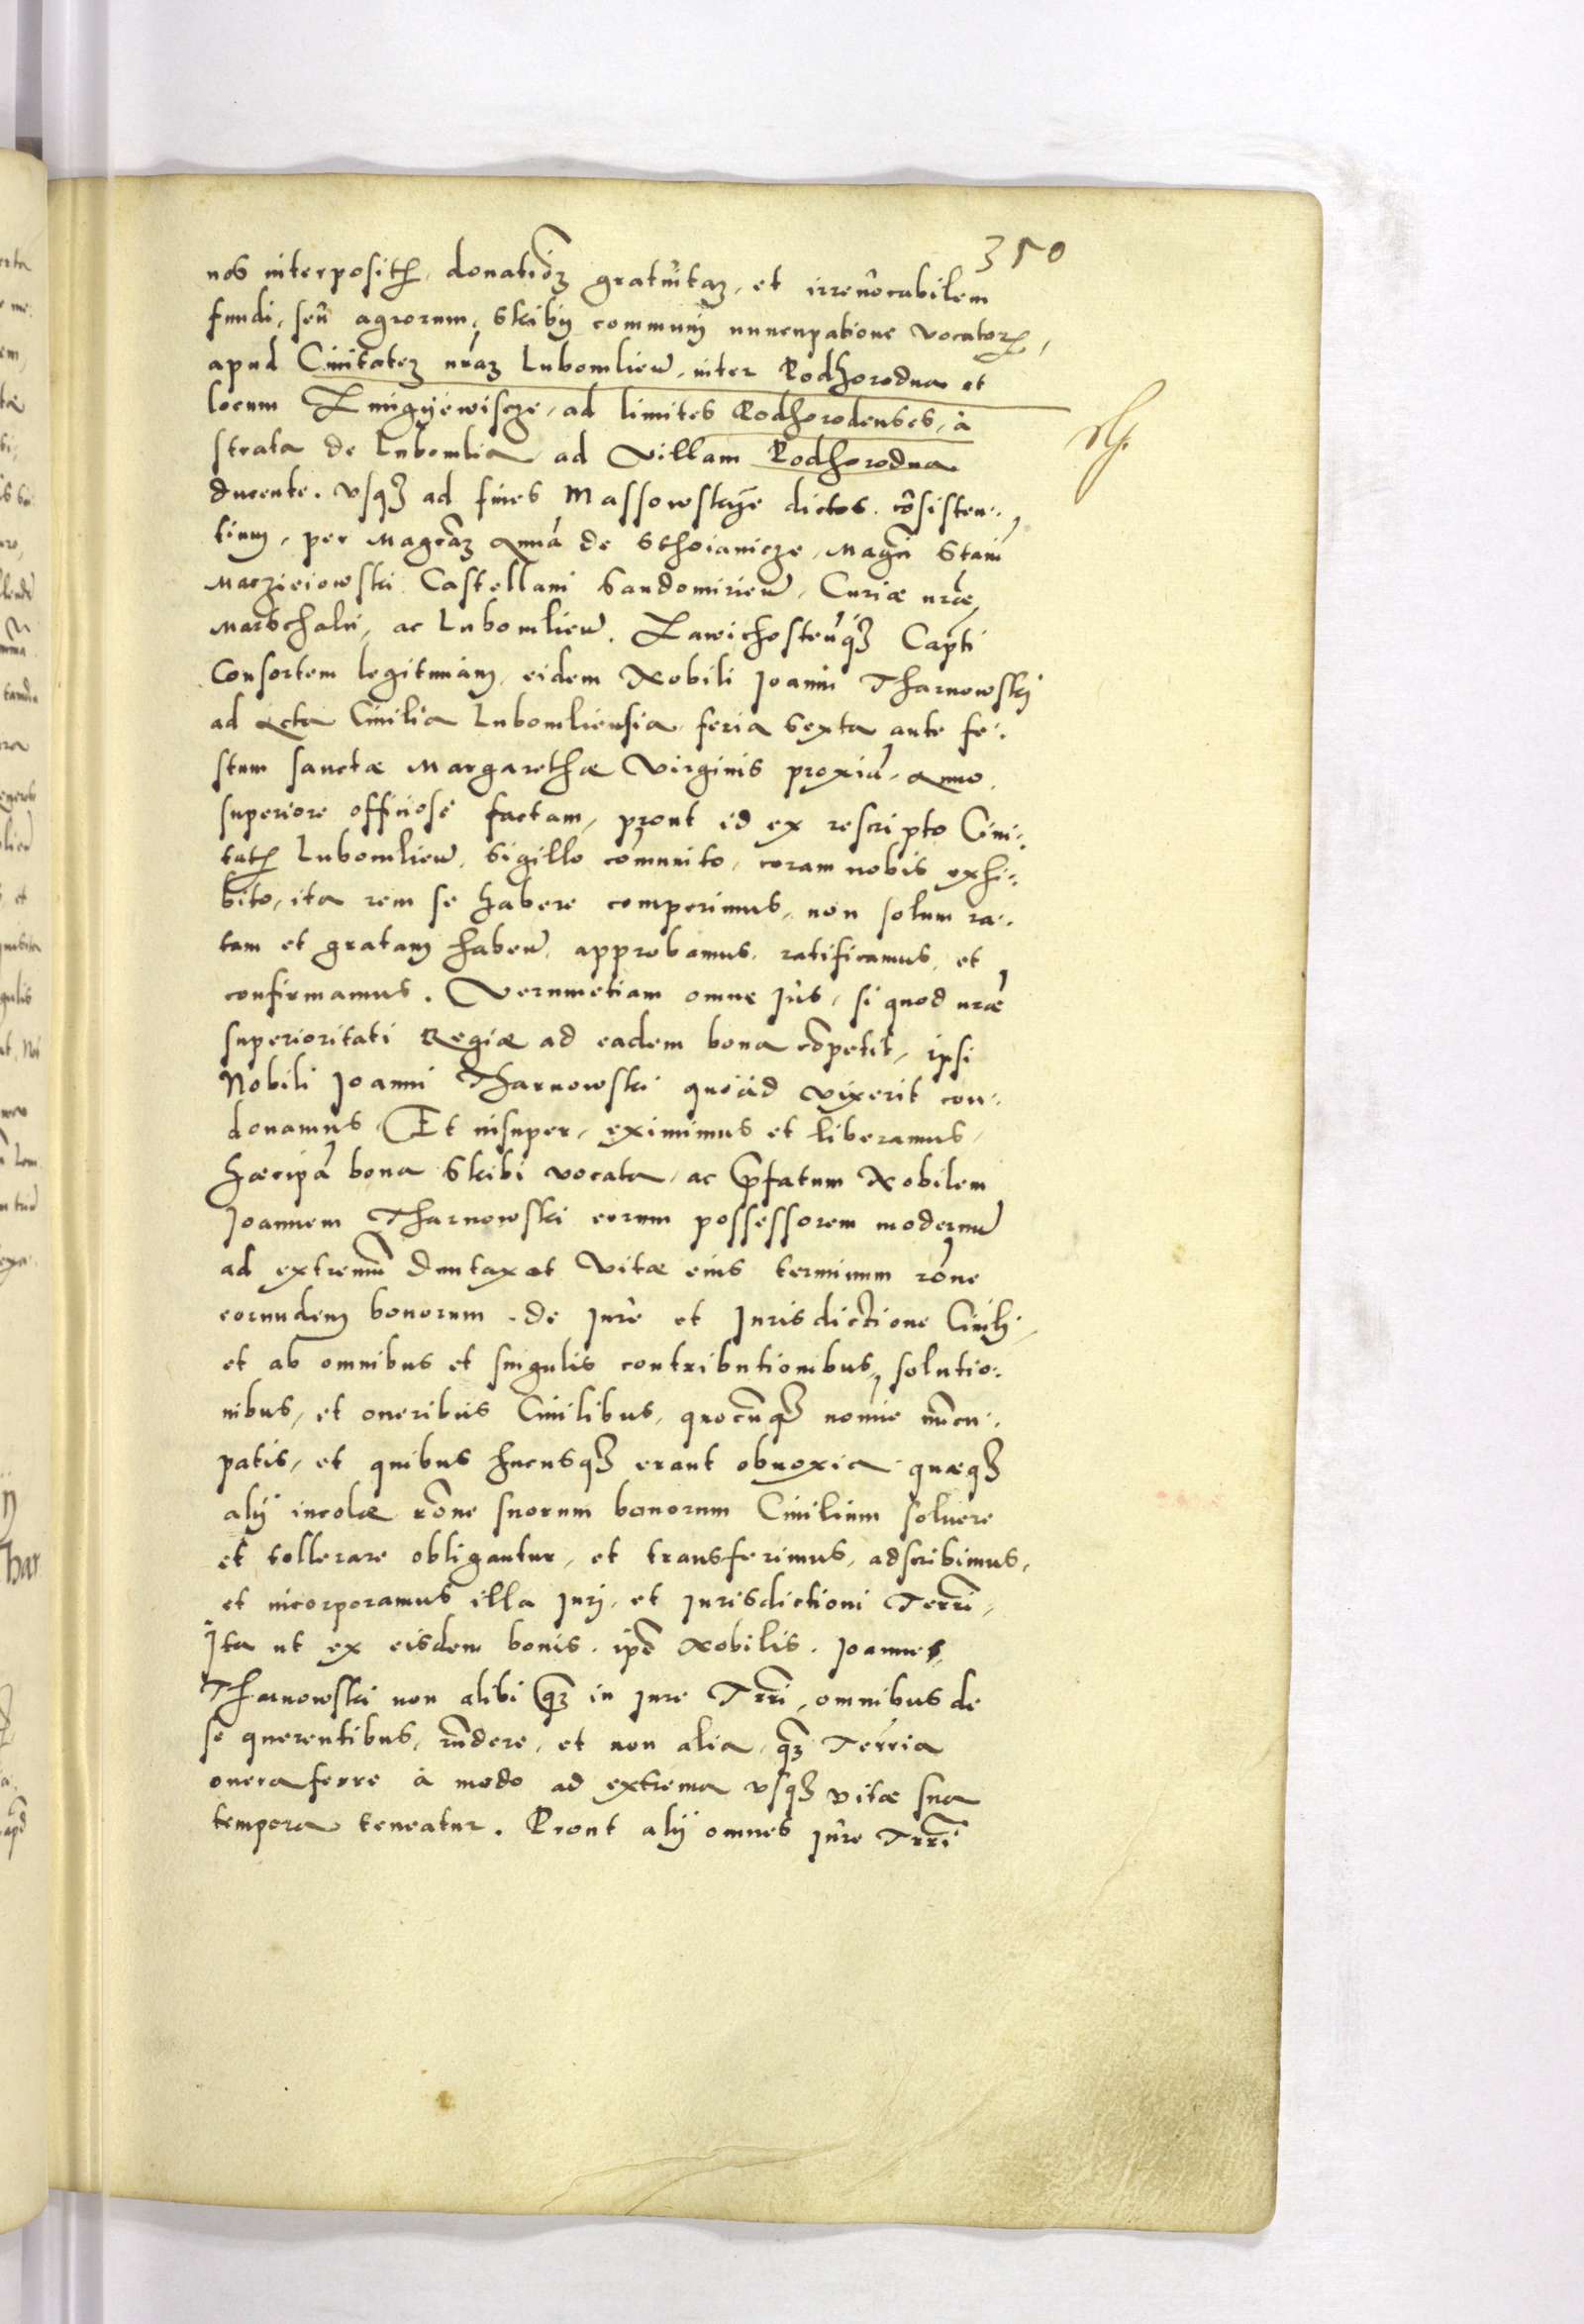 350
nos interposit, donatioẽ gratuitam, et irreuocabilem
fundi, seu agrorum, Skibij communi nuncupatione vocator,
apud Ciuitatem nrãm Lubomlien, inter Podhorodna et
locum Zmigyewiscze, ad limites Podhorodenses, à
strata de Lubomlia ad Villam Podhorodna
ducente. vsq ad fines Massowskye dictos. cõsisten
tium, per Magcãm Annã de Sthoianicze, Magci Stani
Maczieiowski Castellani Sandomirien, Curiæ nræ
Marschalci, ac Lubomlien. Zawichostenq Capti
Consortem legitimam, eidem Nobili Joanni Tharnowski
ad Acta Ciuilia Lubomliensia feria sexta ante fe
stum sanctæ Margarethæ Virginis proxiã, Anno
superiore officiose factam, prout id ex rescripto Ciui
tat Lubomlien, Sigillo cõmunito, coram nobis exhi
bito, ita rem se habere comperimus, non solum ra
tam et gratam haben, approbamus, ratificamus, et
confirmamus. Verumetiam omne Jus, si quod nræ
superioritati Regiæ ad eadem bona cõpetit, ipsi
Nobili Joanni Tharnowski quoad vixerit con
donamus. Et insuper, eximimus et liberamus,
hæc ipã bona Skibi vocata, ac pfatum Nobilem
Joannem Tharnowski eorum possessorem modernũ
ad extremũ duntaxat vitæ eius terminum rõne
eorundem bonorum. de Jure et Jurisdictione Ciuili,
et ab omnibus et singulis contributionibus, solutio
nibus, et oneribus Ciuilibus, quocũq nomine nũcu
patis, et quibus hucusq erant obnoxia quæq
alij incolæ rõne suorum bonorum Ciuilium soluere
et tollerare obligantur, et transferimus, adscribimus,
et incorporamus illa Juri, et Jurisdictioni Terri,
Ita ut ex eisdem bonis. ipe Nobilis. Joannes
Tharnowski non alibi q̃ in Jure Trri, omnibus de
se querentibus, rñdere, et non alia, q̃ Terria
onera ferre à modo ad extrema vsq vitæ sua
tempora teneatur. Prout alij omnes Jure Trri